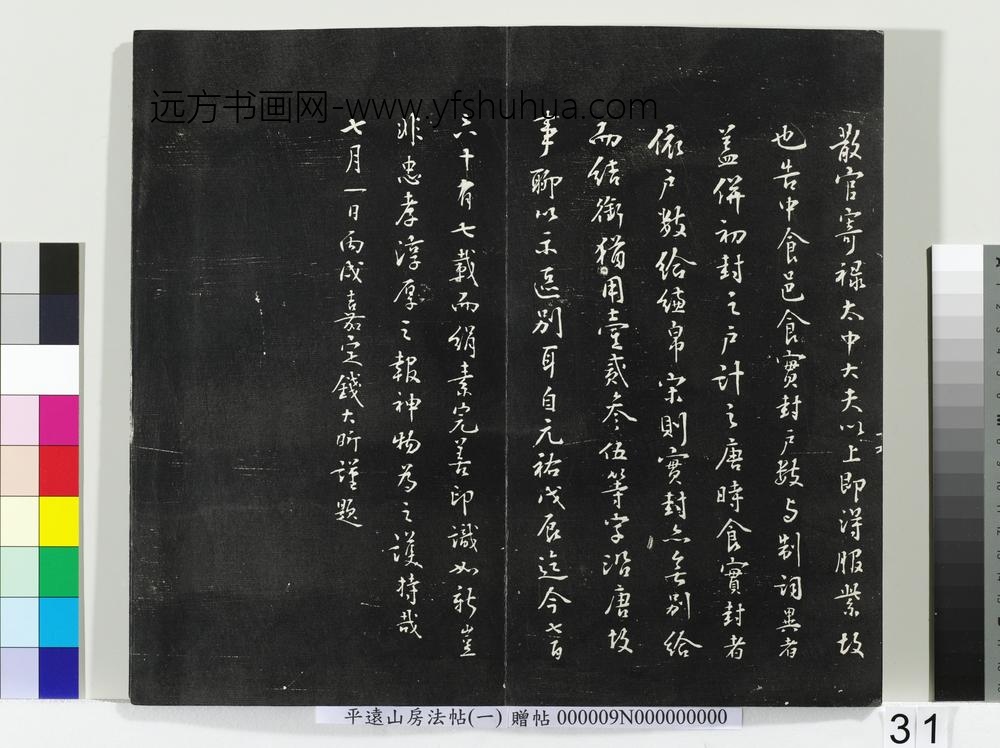 散官寄禄太中大夫以上即得服紫故
也告中食邑食實封戶數与制詞異者
蓋併初封之戶計之唐時食實封者
依戶數給縑帛宋則實封亦無別給
而結銜猶用壹貳叁伍等字沿唐故
事聊以示區別耳自元祐戊辰迄今七百
六十有七載而絹素完善印識如新豈
非忠孝淳厚之報神物為之護持哉
七月一日丙戌嘉定錢大昕謹題
远方书画网-www.yfshuhua.com
平遠山房法帖(一) 贈帖 000009N000000000
31